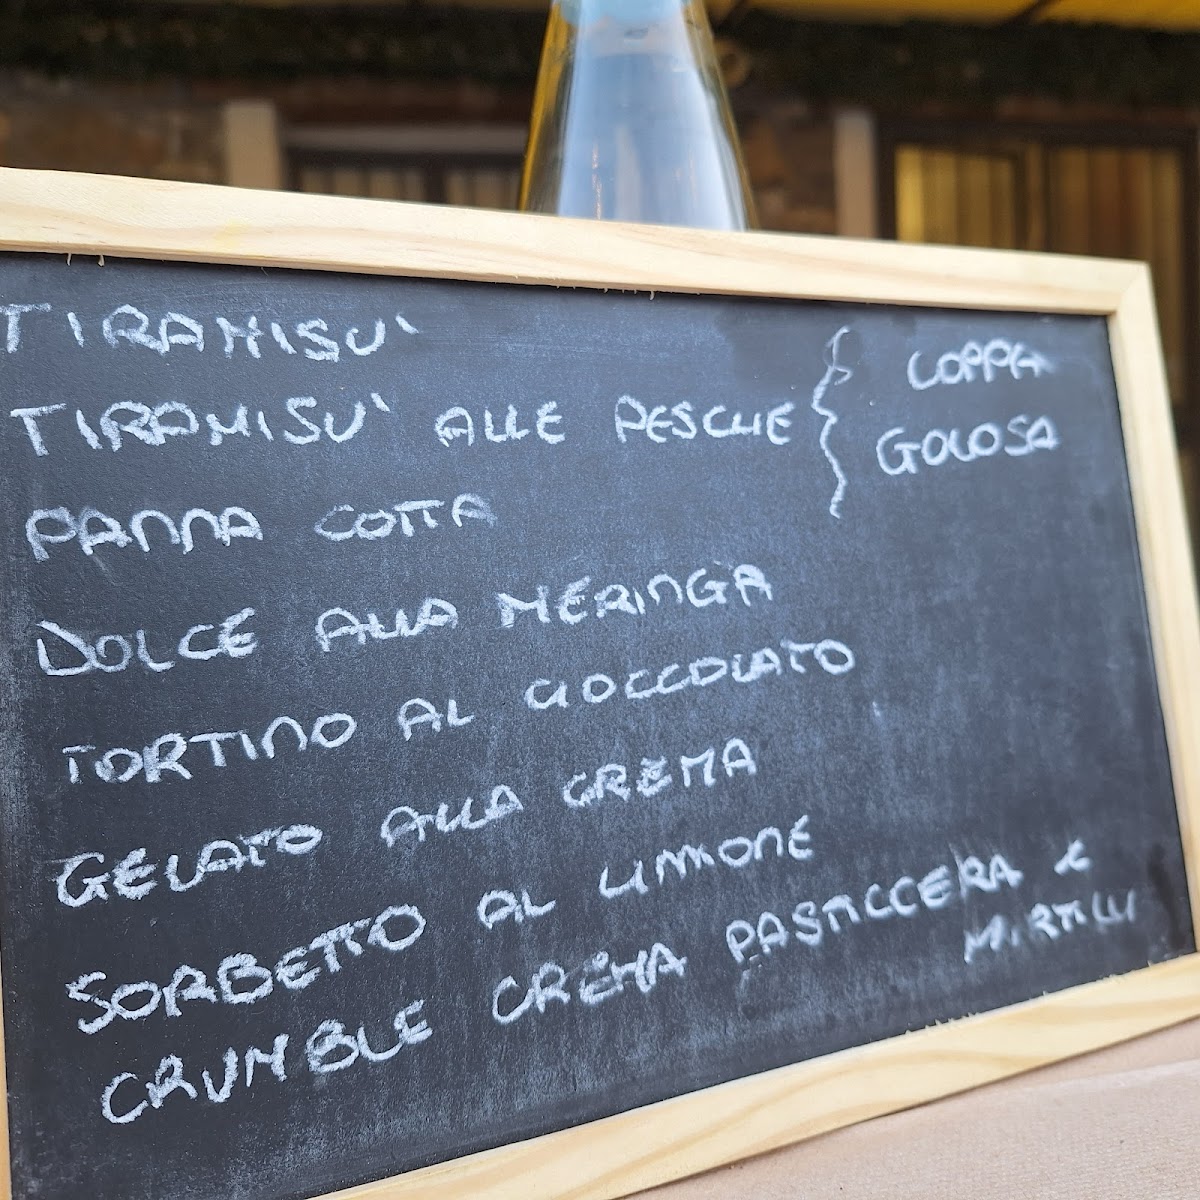 TIRAMISU'
TIRAMISU' ALLE PESCHE
COPPA
GOLOSA
PANNA COTTA
DOLCE ALLA MERINGA
TORTINO AL CIOCCOLATO
GELATO ALLA CREMA
SORBETTO AL LIMONE
CRUMBLE CREMA PASTICCERA e
MIRTILLI